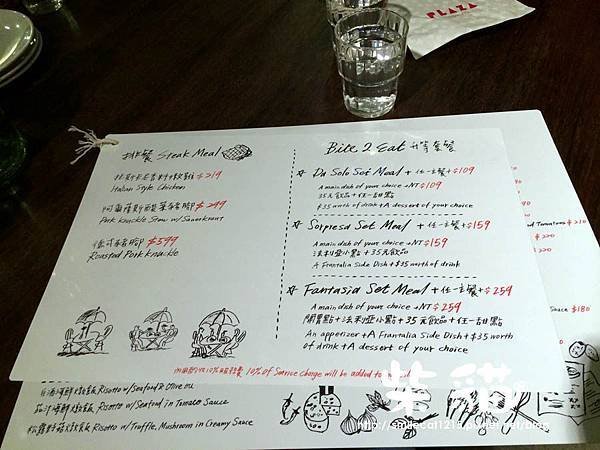 PLAZA
排餐 Steak Meal
$219
Italian Style Chicken
$299
Pork knuckle Stew w/Sauerkraut
德式豬腳 $599
Roasted Pork knuckle
Bite 2 Eat 升等套餐
Da Solo Set Meal + 任一主餐 + $109
A main dish of your choice +NT$109
35元飲品 + 任一甜點
$35 worth of drink + A dessert of your choice
Sorpresa Set Meal + 任一主餐 + $159
A main dish of your choice +NT$159
法利亞小點 + 35元飲品
A Frantalia Side Dish + $35 worth of drink
Fantasia Set Meal + 任一主餐 + $259
A main dish of your choice +NT$259
開胃點 + 法利亞小點 + 35元飲品 + 任一甜點
An appetizer + A Frantalia Side Dish + $35 worth
of drink + A dessert of your choice
10% of Service Charge will be added to
Tomatoes $210
$220
$220
Sauce $180
Risotto w/Seafood & Olive oil
Risotto w/Seafood in Tomato Sauce
Risotto w/Truffle, Mushroom in Creamy Sauce
柴貓
http://smilecat1215.pixnet.net/blog